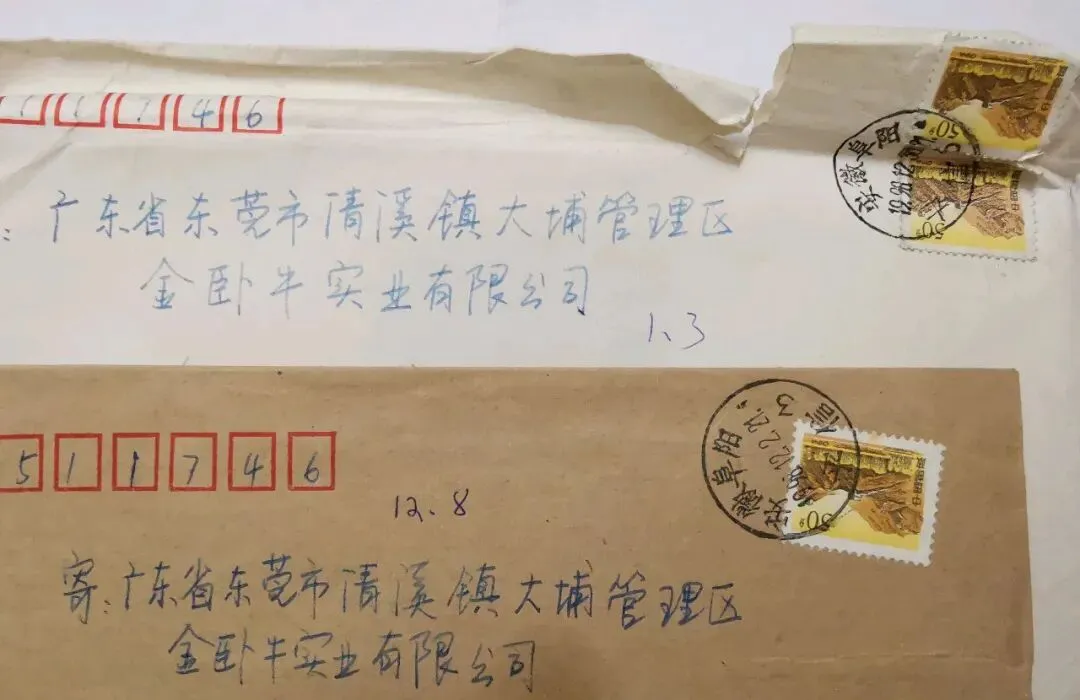 1 1 7 4 6
: 广东省东莞市清溪镇大埔管理区
金卧牛实业有限公司
1.3
安徽阜阳
50分
50分
5 1 1 7 4 6
12.8
寄:广东省东莞市清溪镇大埔管理区
金卧牛实业有限公司
安徽阜阳
1996.12.2.21
3
50分